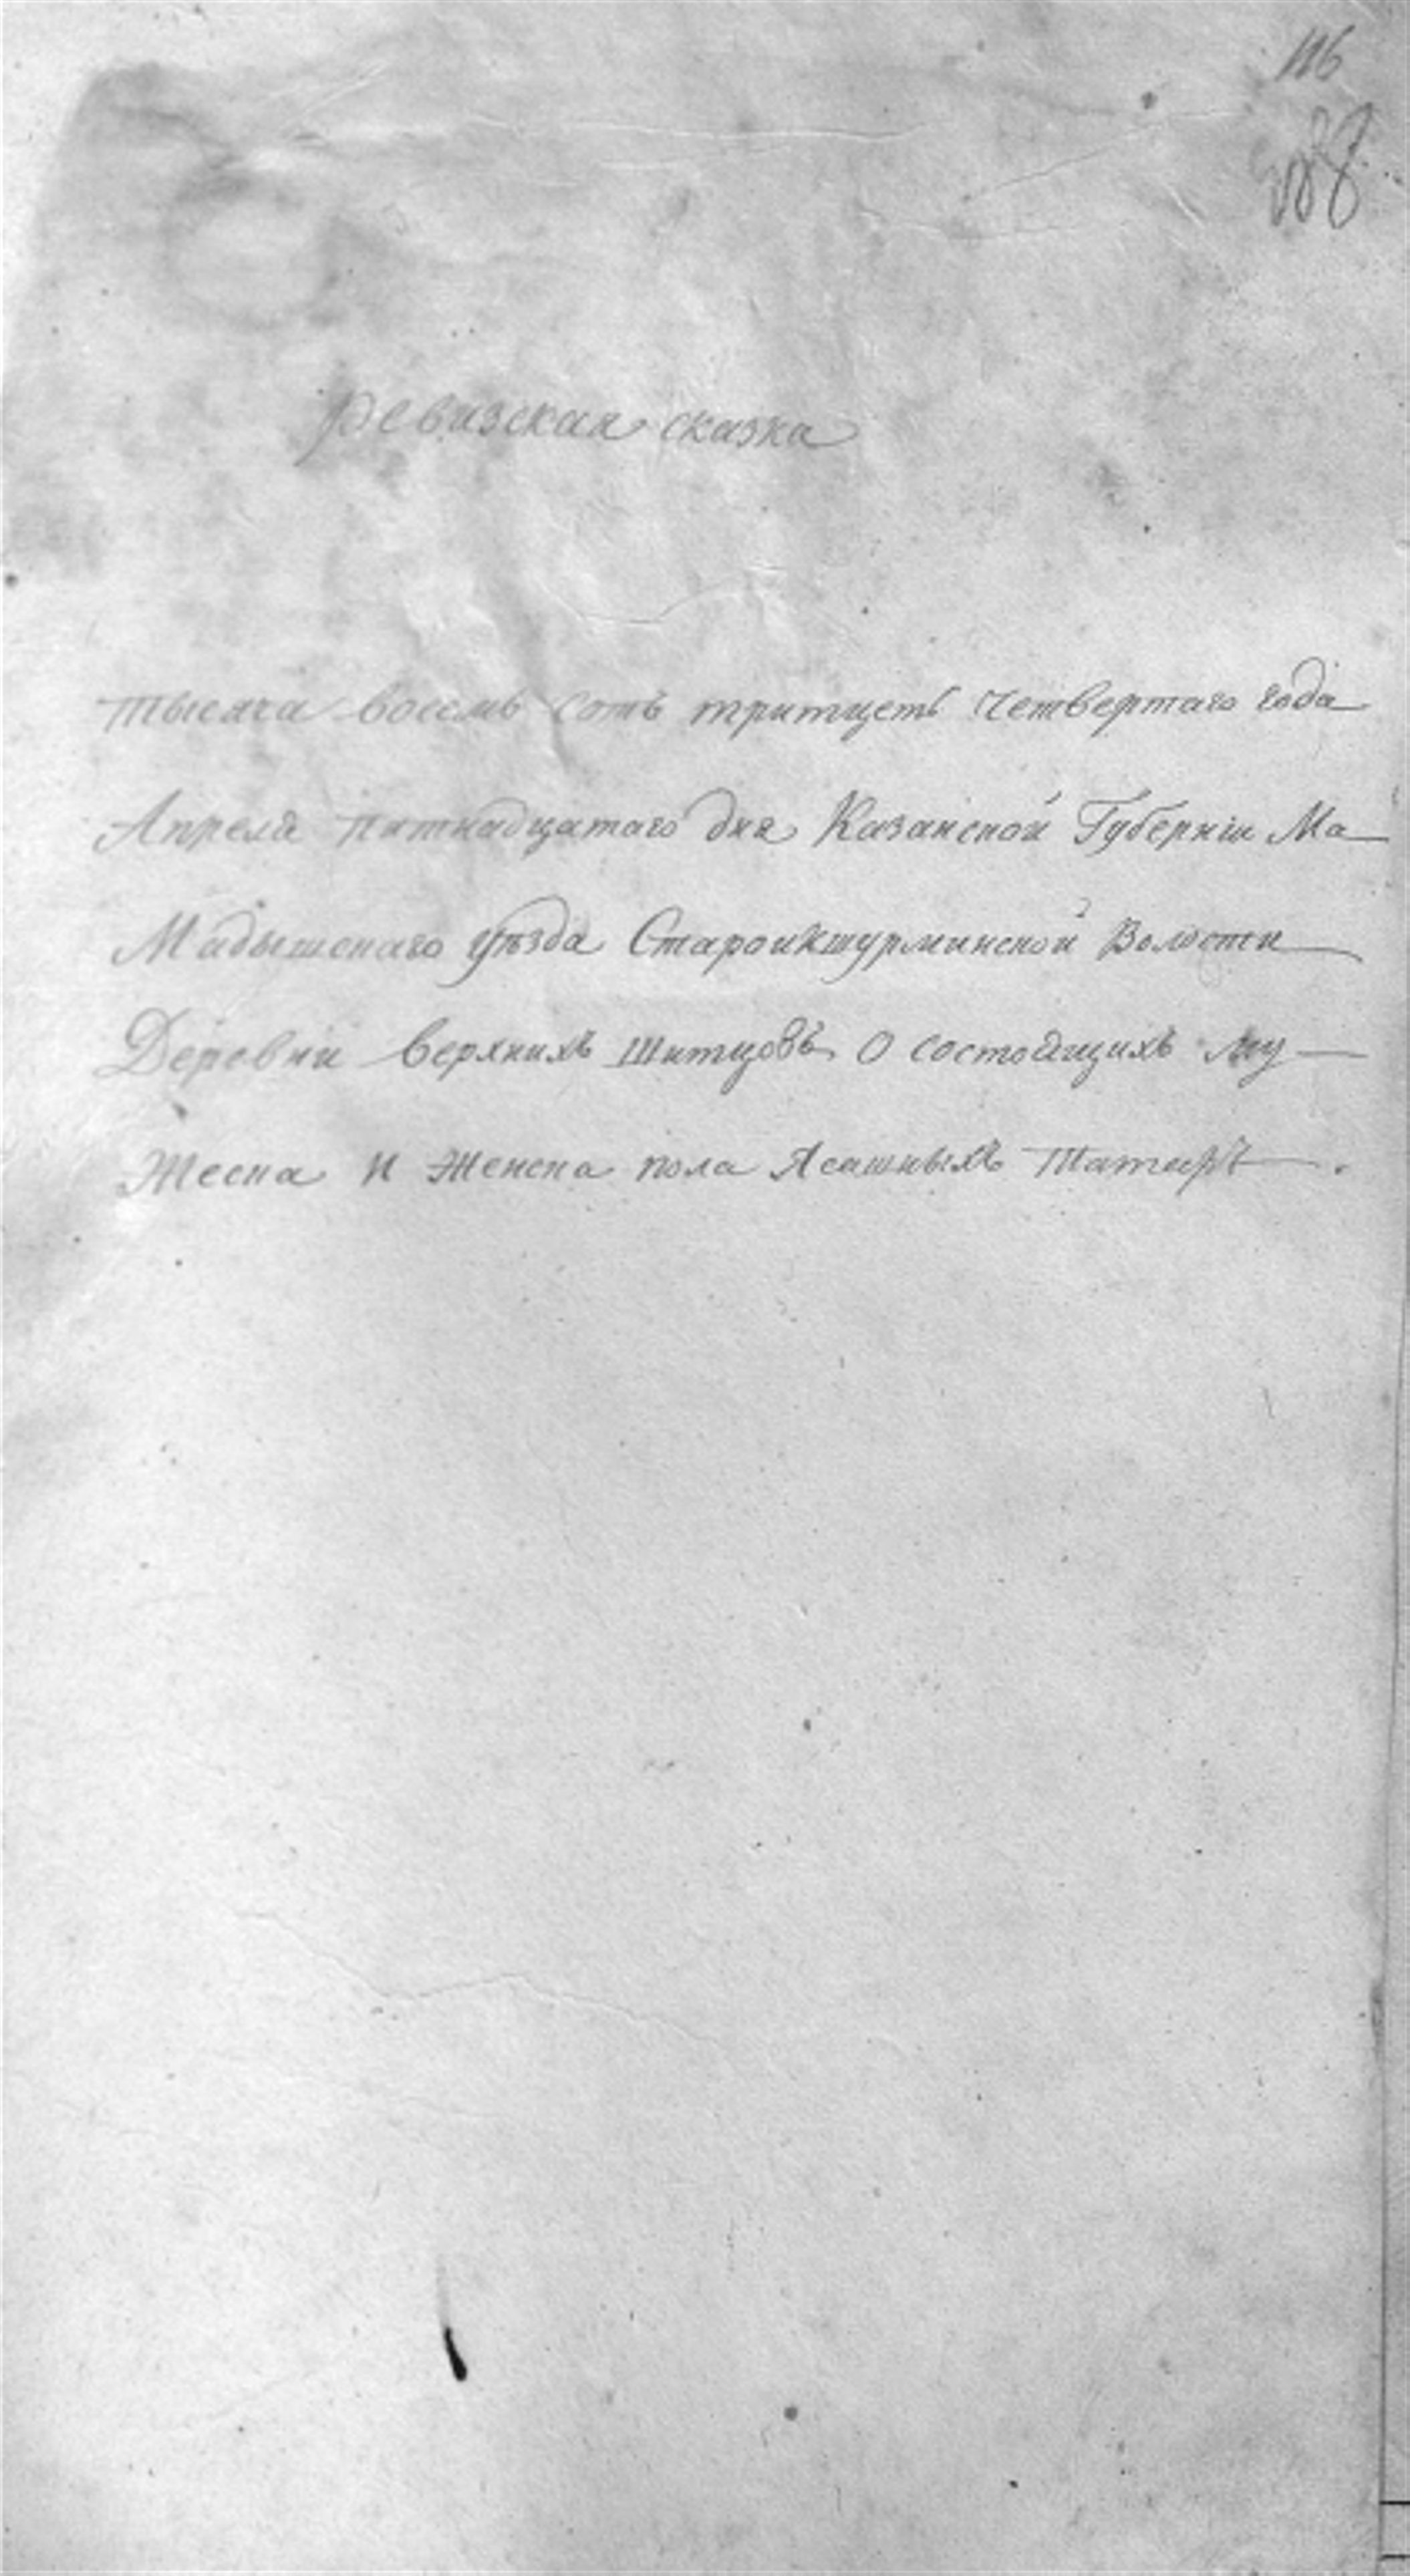 116
Ревизская сказка
Тысяча восемь сотъ тритцеть четвертаго года
Апреля пятнадцатаго дня Казанской Губерніи Ма
Мадышскаго уѣзда Староикшурминской Волости
Деревни верхнихъ Шитцовъ О состоящихъ му
жеска и женска пола Ясашныхъ Татаръ.